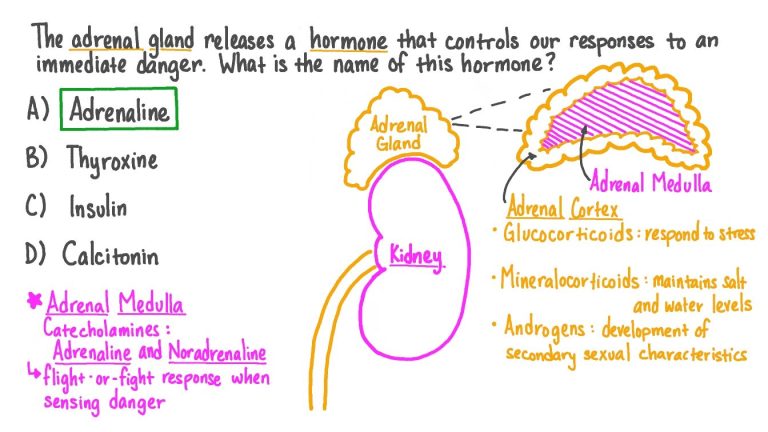 The adrenal gland releases a hormone that controls our responses to an
immediate danger. What is the name of this hormone?
A) Adrenaline
B) Thyroxine
C) Insulin
D) Calcitonin
* Adrenal Medulla
Catecholamines :
Adrenaline and Noradrenaline
↳ flight-or-fight response when
sensing danger
Adrenal
Gland
Kidney
Adrenal Medulla
Adrenal Cortex
• Glucocorticoids : respond to stress
• Mineralocorticoids : maintains salt
and water levels
• Androgens : development of
secondary sexual characteristics